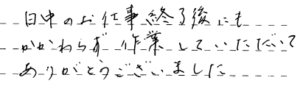 日中のお仕事終了後にも
かかわらず作業していただいて
ありがとうございました